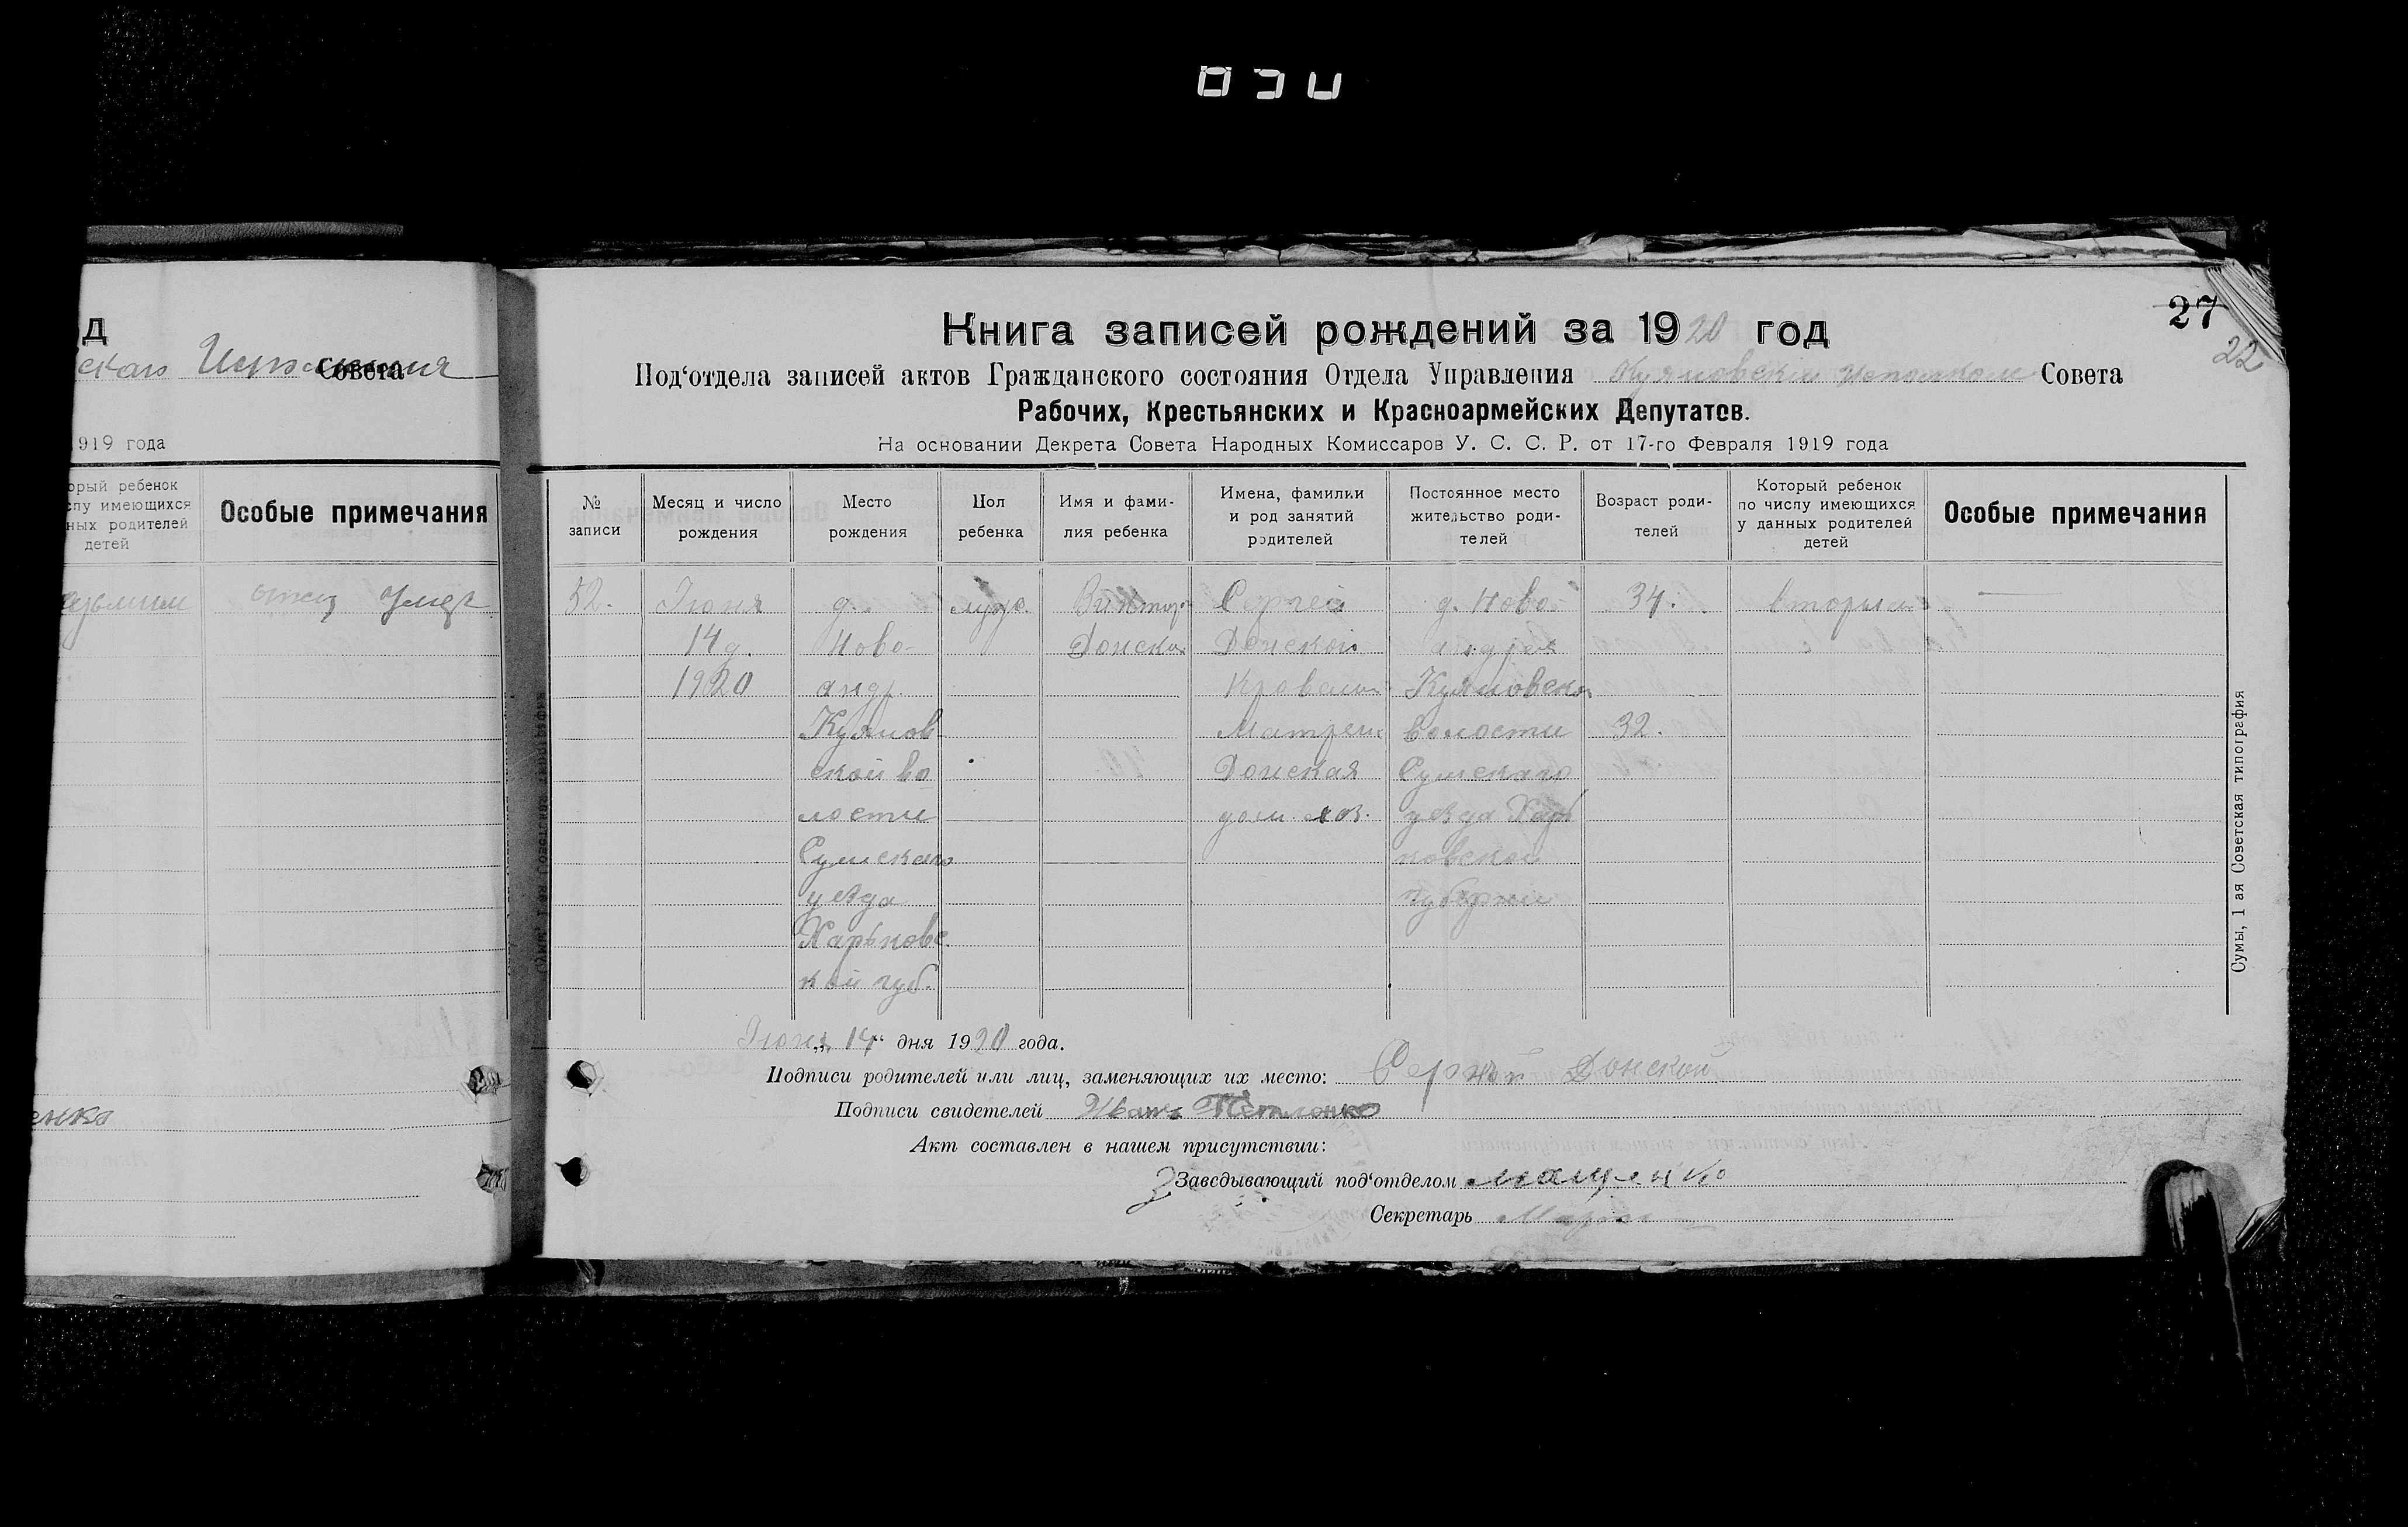 д
ских
Совета
919 года
орый ребенок
слу имеющихся
ных родителей
детей
Особые примечания
отец умер
енко
27
22
Книга записей рождений за 1920 год
Под‘отдела записей актов Гражданского состояния Отдела Управления Куяновский Исполком Совета
Рабочих, Крестьянских и Красноармейских Депутатов.
На основании Декрета Совета Народных Комиссаров У. С. С. Р. от 17-го Февраля 1919 года
№ записи
Месяц и число рождения
Место рождения
Пол ребенка
Имя и фами-
лия ребенка
Имена, фамилии
и род занятий
родителей
Постоянное место
жительство роди-
телей
Возраст роди-
телей
Который ребенок
по числу имеющихся
у данных родителей
детей
Особые примечания
52.
Июня
14 д.
1920
д.
Ново-
андр.
Куянов
ской во
лости
Сумскаго
уезда
Харьковс
кой губ.
муж.
Виктор
Донской
Сергей
Донской
Матрена
Донская
дом. хоз.
д. Ново-
Куяновской
волости
Сумскаго
уезда Харь
ковской
губернии
34.
32.
вторым
Июня „14“ дня 1920 года.
Подписи родителей или лиц, заменяющих их место: Сергей Донской
Подписи свидетелей Иван Петленко
Акт составлен в нашем присутствии:
Заведывающий под‘отделом Мащенко
Секретарь
Сумы, 1 ая Советская типография